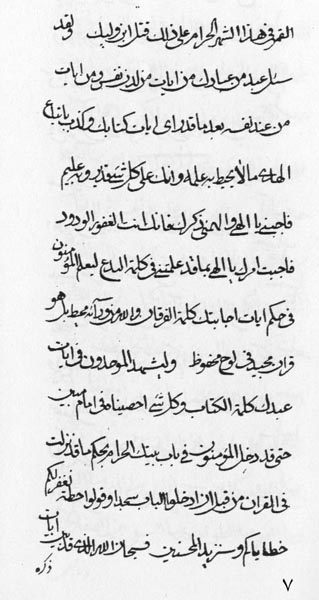 القمر في هذا الشهر الحرام على ذلك قتل ابن وليك ولقد
سئل عبد من عبادك من ايات من لدن نفسي ومن ايات
من عند نفسه بعد ما قدراى ايات كتابك وكذب باتباع
الهاء مالا يحيط به علمه وانك على كل شئ قدير وبه عليم
فاجبني يا الهي والهمني ذكرك فانك انت الغفور الودود
فاجبت امرك يا الهي بما قد علمتني في كلمة البدع ليعلم المؤمنون
في حكم ايات اجابتك كلمة الفرقان والله من ورآئه محيط بل هو
قران مجيد في لوح محفوظ وليشهد الموحدون في ايات
عبدك كلمة الكتاب وكل شئ احصيناه في امام مبين
حتى قد دخل المؤمنون في باب بيتك الحرام بحكم ما قد نزلت
في القران من قبل ان ادخلوا الباب سجدا وقولوا حطة نغفر لكم
خطاياكم وسنزيد المحسنين فسبحان الله الذي قد ايات
ذكره
٧